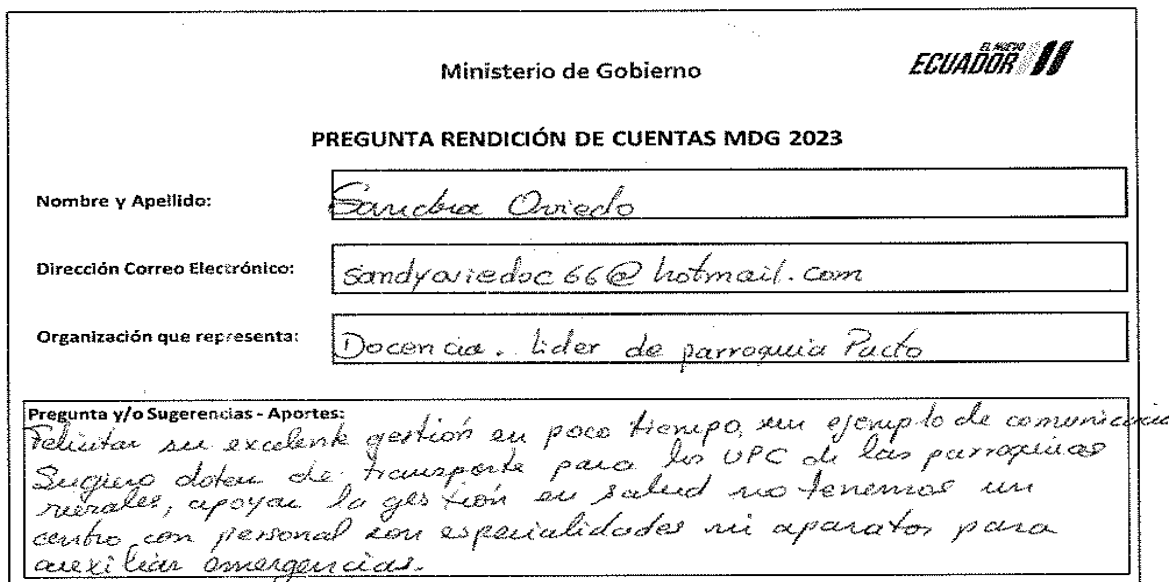 Ministerio de Gobierno
EL NUEVO
ECUADOR
PREGUNTA RENDICIÓN DE CUENTAS MDG 2023
Nombre y Apellido: Sandra Oviedo
Dirección Correo Electrónico: sandyoviedoc66@hotmail.com
Organización que representa: Docencia. lider de parroquia Pacto
Pregunta y/o Sugerencias - Aportes:
Felicitar su excelente gestión en poco tiempo, un ejemplo de comunicació
Sugiero doten de transporte para los UPC de las parroquias
rurales, apoyar la gestión en salud no tenemos un
centro con personal con especialidades ni aparatos para
auxiliar emergencias.